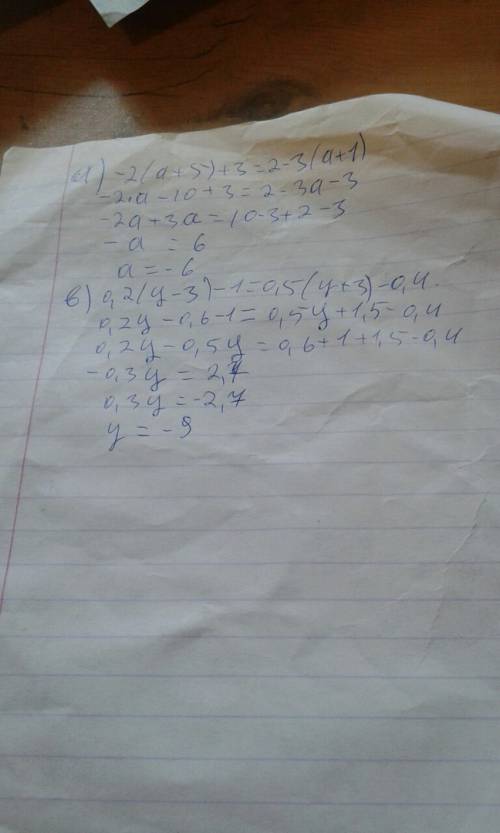 а) -2(а+5)+3=2-3(а+1)
-2·а-10+3=2-3а-3
-2а+3а=10-3+2-3
-а=6
а=-6
в) 0,2(у-3)-1=0,5(у+3)-0,4.
0,2у-0,6-1=0,5у+1,5-0,4
0,2у-0,5у=0,6+1+1,5-0,4
-0,3у=2,7
0,3у=-2,7
у=-9